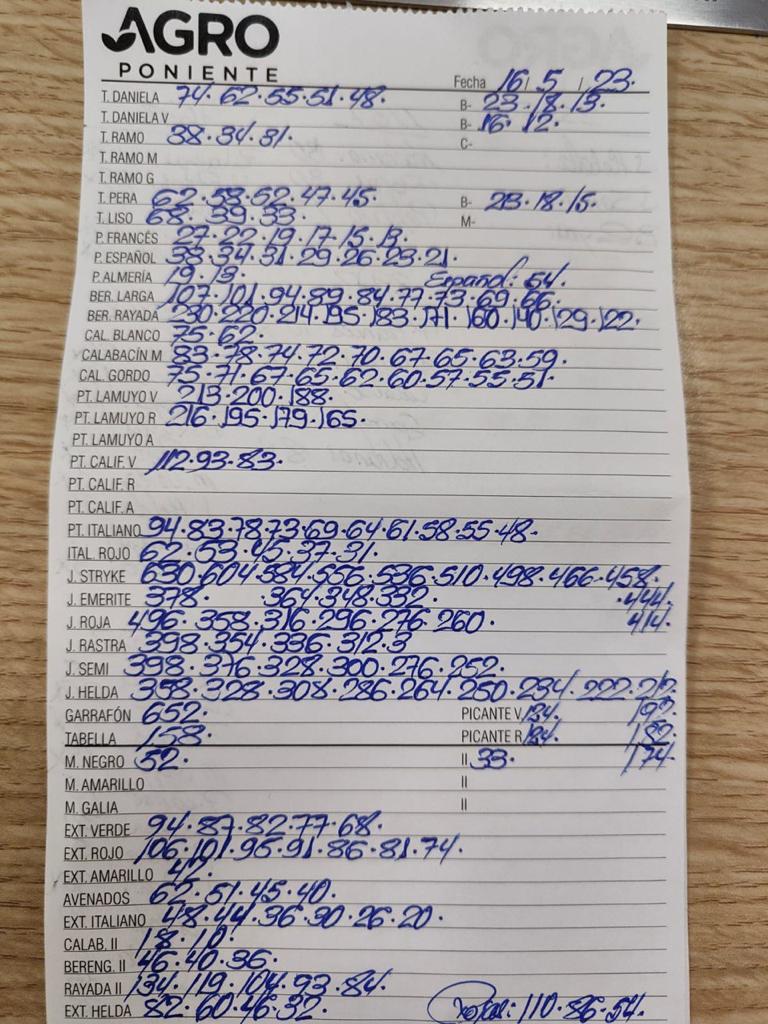 AGRO
PONIENTE
Fecha 16 / 5 / 23.
T. DANIELA 74·62·55·51·48· B- 23·18·13·
T. DANIELA V B- 16·12·
T. RAMO 38·34·31· C-
T. RAMO M
T. RAMO G
T. PERA 62·58·52·47·45· B- 23·18·15·
T. LISO 68·39·33· M-
P. FRANCÉS 27·22·19·17·15·13·
P. ESPAÑOL 38·34·31·29·26·23·21·
P. ALMERÍA 19·13· Español: 54·
BER. LARGA 107·101·94·89·84·77·73·69·66·
BER. RAYADA 230·220·214·195·183·171·160·140·129·122·
CAL. BLANCO 75·62·
CALABACÍN M 83·78·74·72·70·67·65·63·59·
CAL. GORDO 75·71·67·65·62·60·57·55·51·
PT. LAMUYO V 213·200·188·
PT. LAMUYO R 216·195·179·165·
PT. LAMUYO A
PT. CALIF. V 112·93·83·
PT. CALIF. R
PT. CALIF. A
PT. ITALIANO 94·83·78·73·69·64·61·58·55·48·
ITAL. ROJO 62·53·45·37·31·
J. STRYKE 630·604·584·556·536·510·498·466·458·
J. EMERITE 378· ·364·348·332· ·444·
J. ROJA 496·358·316·296·276·260· 414·
J. RASTRA 398·354·336·312·3
J. SEMI 398·376·328·300·276·252·
J. HELDA 358·328·308·286·264·250·234·222·212·
GARRAFÓN 652· PICANTE V 134· 192·
TABELLA 158· PICANTE R 184· 182·
M. NEGRO 52· II 33· 174·
M. AMARILLO II
M. GALIA II
EXT. VERDE 94·87·82·77·68·
EXT. ROJO 106·101·95·91·86·81·74·
EXT. AMARILLO 42·
AVENADOS 62·51·45·40·
EXT. ITALIANO 48·44·36·30·26·20·
CALAB. II 18·10·
BERENG. II 46·40·36·
RAYADA II 134·119·104·93·84·
EXT. HELDA 82·60·46·32· 110·86·54·